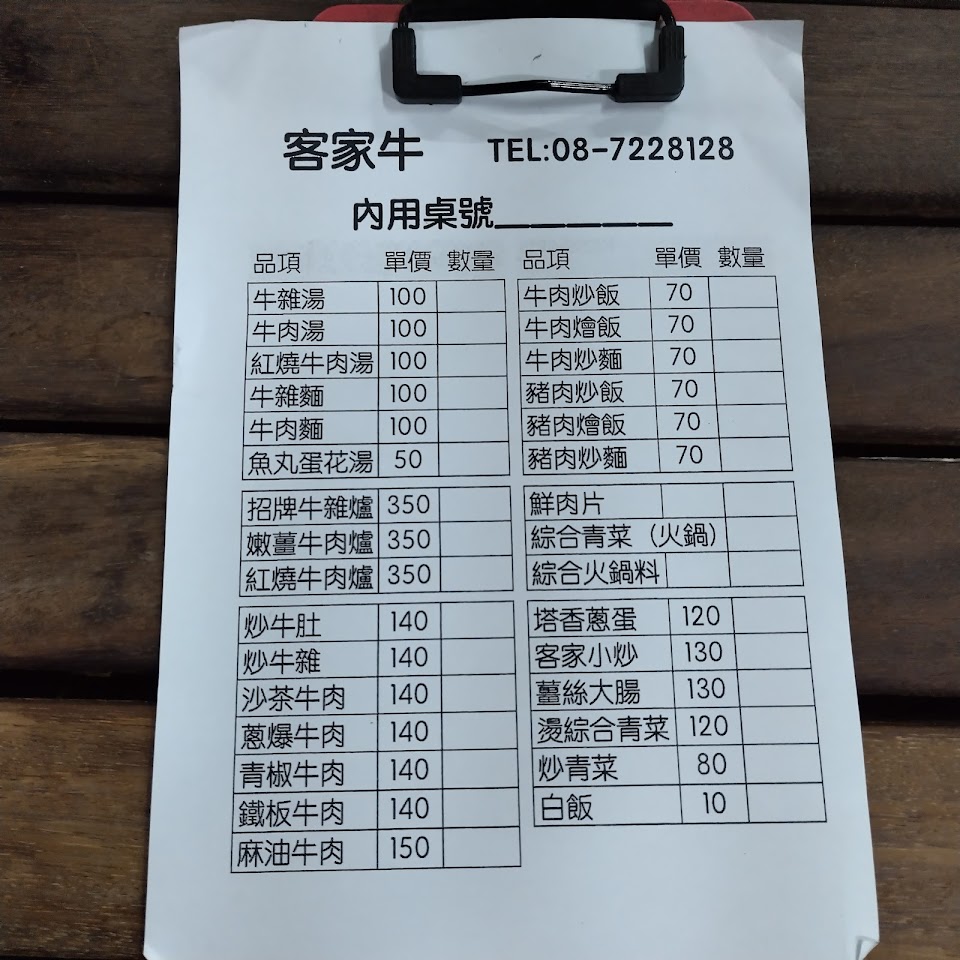 客家牛 TEL:08-7228128
內用桌號______
品項 單價 數量
牛雜湯 100
牛肉湯 100
紅燒牛肉湯 100
牛雜麵 100
牛肉麵 100
魚丸蛋花湯 50
招牌牛雜爐 350
嫩薑牛肉爐 350
紅燒牛肉爐 350
炒牛肚 140
炒牛雜 140
沙茶牛肉 140
蔥爆牛肉 140
青椒牛肉 140
鐵板牛肉 140
麻油牛肉 150
品項 單價 數量
牛肉炒飯 70
牛肉燴飯 70
牛肉炒麵 70
豬肉炒飯 70
豬肉燴飯 70
豬肉炒麵 70
鮮肉片
綜合青菜（火鍋）
綜合火鍋料
塔香蔥蛋 120
客家小炒 130
薑絲大腸 130
燙綜合青菜 120
炒青菜 80
白飯 10